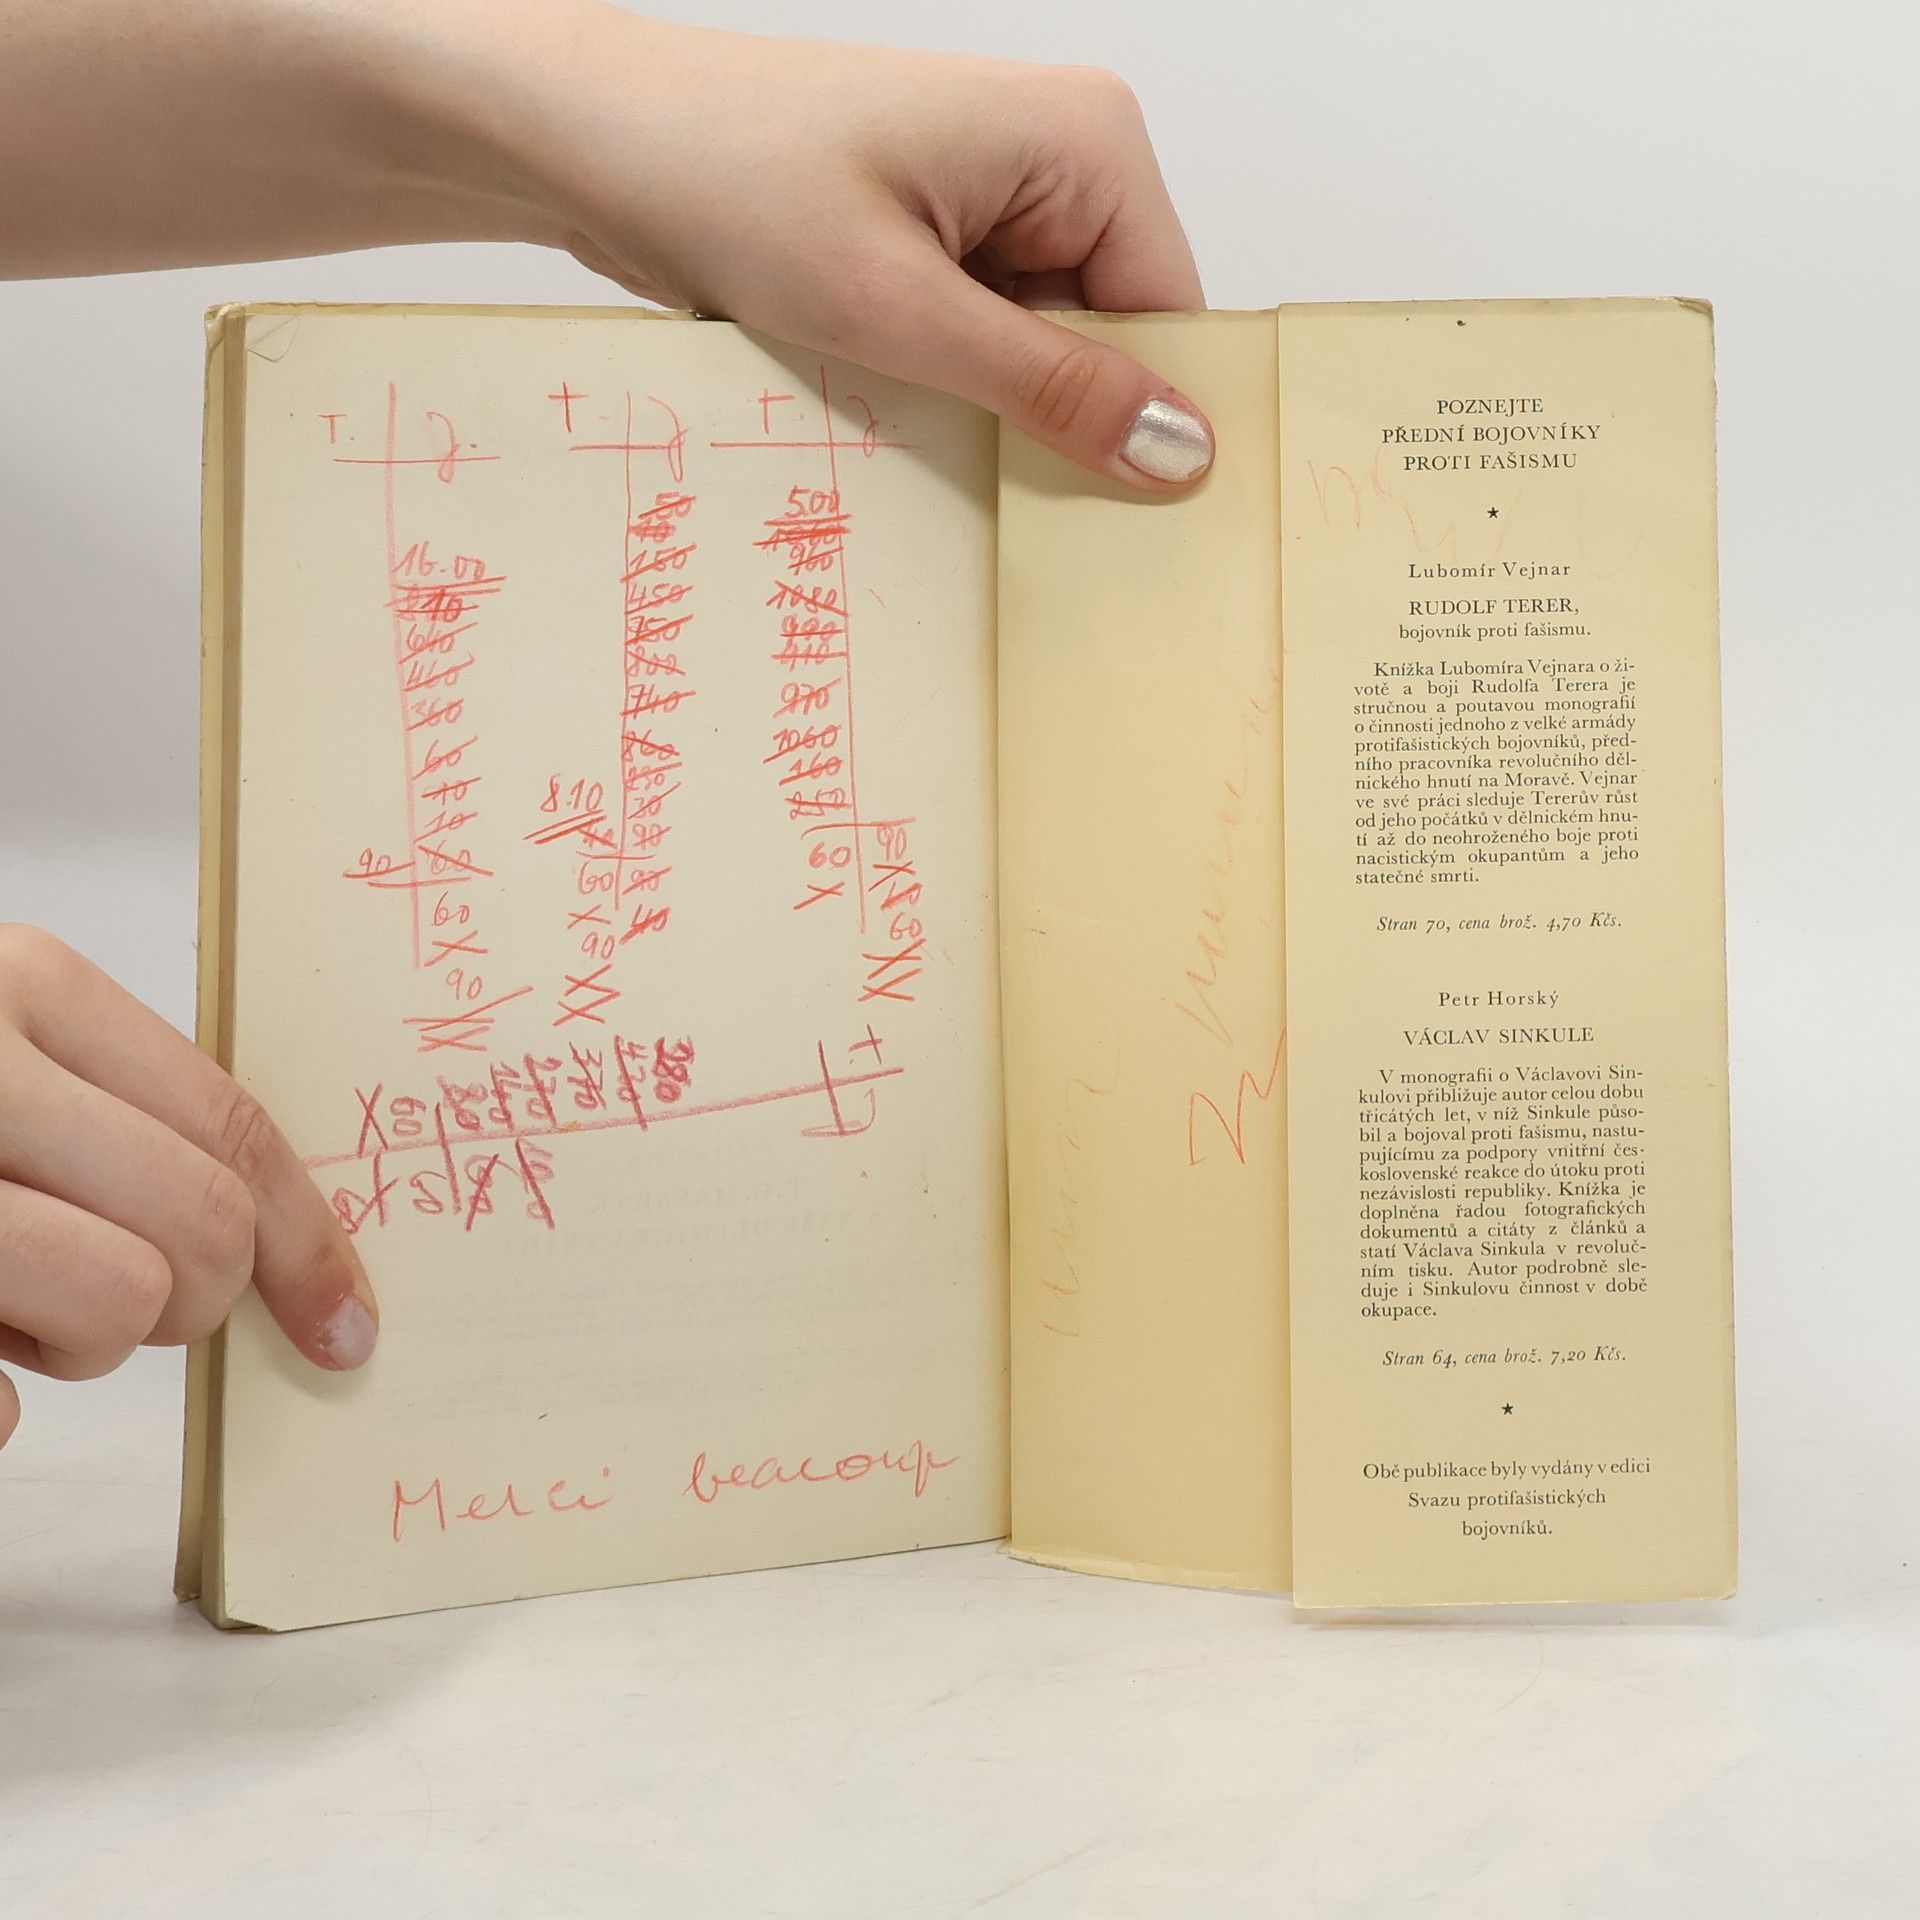 T. J.
16.00
10
640
460
360
60
10
10
90 60
60
X
90
XX
T. J.
50
10
150
450
750
800
740
860
230
30
8.10
90
60 90
X 40
90
XX
T. J.
5.00
960
1080
990
410
970
1060
160
60
X
90
X
60
XX
T.
J
X 60
Merci beacoup
POZNEJTE
PŘEDNÍ BOJOVNÍKY
PROTI FAŠISMU
★
Lubomír Vejnar
RUDOLF TERER,
bojovník proti fašismu.
Knížka Lubomíra Vejnara o ži-
votě a boji Rudolfa Terera je
stručnou a poutavou monografií
o činnosti jednoho z velké armády
protifašistických bojovníků, před-
ního pracovníka revolučního děl-
nického hnutí na Moravě. Vejnar
ve své práci sleduje Tererův růst
od jeho počátků v dělnickém hnu-
tí až do neohroženého boje proti
nacistickým okupantům a jeho
statečné smrti.
Stran 70, cena brož. 4,70 Kčs.
Petr Horský
VÁCLAV SINKULE
V monografii o Václavovi Sin-
kulovi přibližuje autor celou dobu
třicátých let, v níž Sinkule půso-
bil a bojoval proti fašismu, nastu-
pujícímu za podpory vnitřní čes-
koslovenské reakce do útoku proti
nezávislosti republiky. Knížka je
doplněna řadou fotografických
dokumentů a citáty z článků a
statí Václava Sinkula v revoluč-
ním tisku. Autor podrobně sle-
duje i Sinkulovu činnost v době
okupace.
Stran 64, cena brož. 7,20 Kčs.
★
Obě publikace byly vydány v edici
Svazu protifašistických
bojovníků.